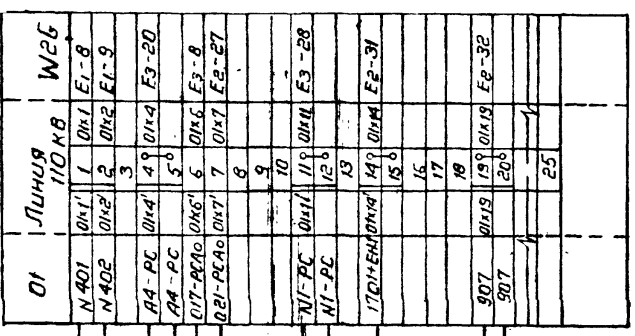 01 Линия 110 кв W2G
N401 01х1' 1 01х1 E1-8
N402 01х2' 2 01х2 E1-9
3
A4-PC 01х4' 4 01х4 E3-20
A4-PC 5
017-PCA0 01х6' 6 01х6 E3-8
021-PCA0 01х7' 7 01х7 E2-27
8
9
10
N1-PC 01х11' 11 01х11 E3-28
N1-PC 12
13
01х14' 14 01х14 E2-31
15
16
17
18
907 01х19 19 01х19 E2-32
907 20
25